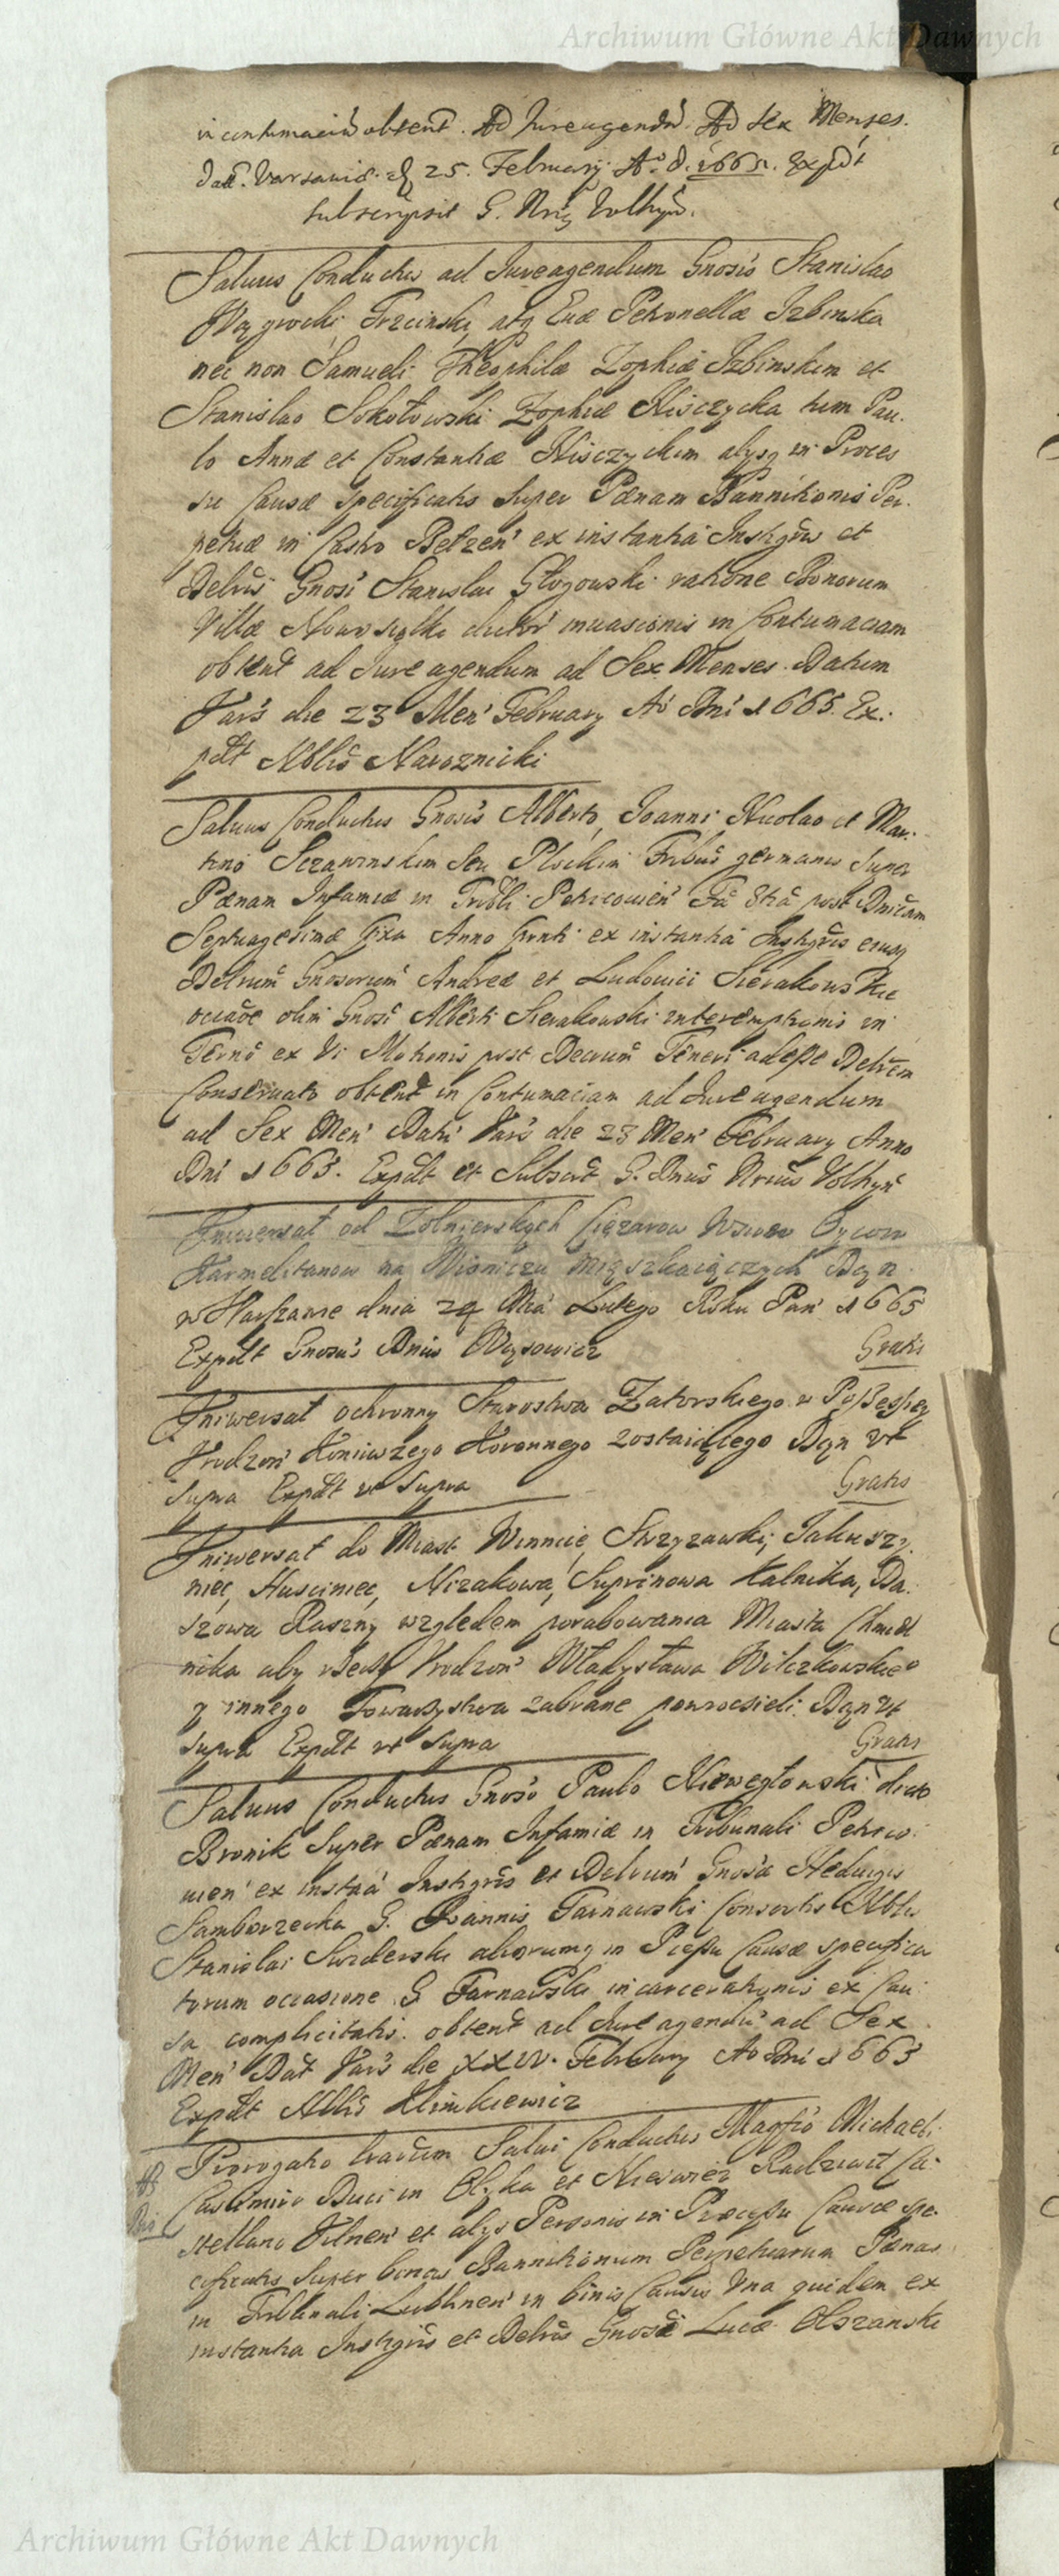 Archiwum Główne Akt Dawnych
in contumaciã obtent. Ad Iureagendũ. Ad sex Menses.
Datt. Varsaviæ. D 25. February A° D. 1665. Expdt
subscripsit G. Nrius Volhyn.
Salvus Conductus ad Iureagendum Gnosis Stanislao
Wozgrocki Trzcinski, atq Evæ Petronellæ Izbinska
nec non Samueli Theophilæ Zophiæ Izbinskim et
Stanislao Sokołowski Zophiæ Kisczycka tum Pau-
lo Annæ et Constantiæ Kisczyckim alysq in Proces
su Causæ specificatis super Pœnam Bannitionis Per-
petuæ in Castro Betzen' ex instantia Instigris et
Delris Gnosi Stanislai Głogowski ratione Bonorum
Villæ Nowosiołki dictor' invasionis in Contumaciam
obtent ad Iure agendum ad Sex Menses. Datum
Vars die 23 Men' February A° Dni 1665. Ex-
pdt Nblis Naroznicki
Salvus Conductus Gnosis Alberto, Joanni Nicolao et Mar-
tino Sczawinskim seu Plockim Fribus germanis super
Pœnam Infamiæ in Tribli Petricovien' Fa 6ta post Dnicam
Septuagesimæ fixa Anno Prnti ex instantia Instigris eiusq
Delrum Gnosorum Andreæ et Ludovici Sierakowskie
occaõe olim Gnosi Alberti Sierakowski interemptionis in
Termo ex Vi Motionis post Decrum Teneri adesse Delrem
Conservato obtent in Contumaciam ad Iure agendum
ad Sex Men' Dati Vars die 23 Men' February Anno
Dni 1665. Expdt et Subscrt G. Dnus Nrius Volhyn
Uniwersał od Zołnierskych Ciężarow Wsiow Oycow
Karmelitanow na Wisniczu mięszkaiączych Dąn
w Warszawie dnia 24 Mca Lutego Roku Pan' 1665
Expdt Gnosus Dnus Wąsowicz Gratis
Uniwersał ochronny Starostwa Zatorskiego w Possessyey
Urodzon' Koniuszego Koronnego zostaiącego Dąn vt
supra Expdt vt supra Gratis
Uniwersał do Miast Winnice, Strzyzawki, Iakuszy-
niec, Husciniec, Nizakowa, Suprinowa Kalnika, Da-
szowa Raszny względem porabowania Miasta Chmiel
nika aby rzeczy Urodzon' Władysława Wilczkowskieº
y innego Towarzystwa zabrane powrocieli. Dąn vt
supra Expdt vt supra Gratis
Salvus Conductus Gnoso Paulo Niewęgłowski dicto
Bronik super Pœnam Infamiæ in Tribunali Petrico-
vien' ex insta'a Instigris et Delrum Gnosæ Hedwigis
Samborzecka G. Joannis Tarnawski Consortis Nblis
Stanislai Swiderski aliorumq in Pcessu Causæ specifica
torum occasione G Tarnawski incarcerationis ex Cau
sa complicitatis. obtent ad Iure agendũ ad Sex
Men' Dat Vars die XXIV. February A° Dni 1665
Expdt Nblis Klimkiewicz
Prorogatio trarum Salvi Conductus Magfco Michaeli
Casimiro Duci in Olyka et Nieswiez Radziwił Ca-
stellano Vilnen' et alys Personis in Processu Causæ spe-
cificatis super binas Bannitionum Perpetuarum Pœnas
in Tribunali Lublinen' in binis Causis Una quidem ex
instantia Instigris et Delris Gnosi Lucæ Olszanski
Archiwum Główne Akt Dawnych